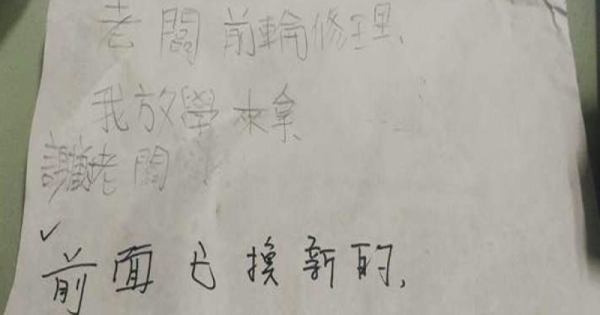 老闆前輪修理、
我放學來拿
謝謝老闆
前面已換新的.